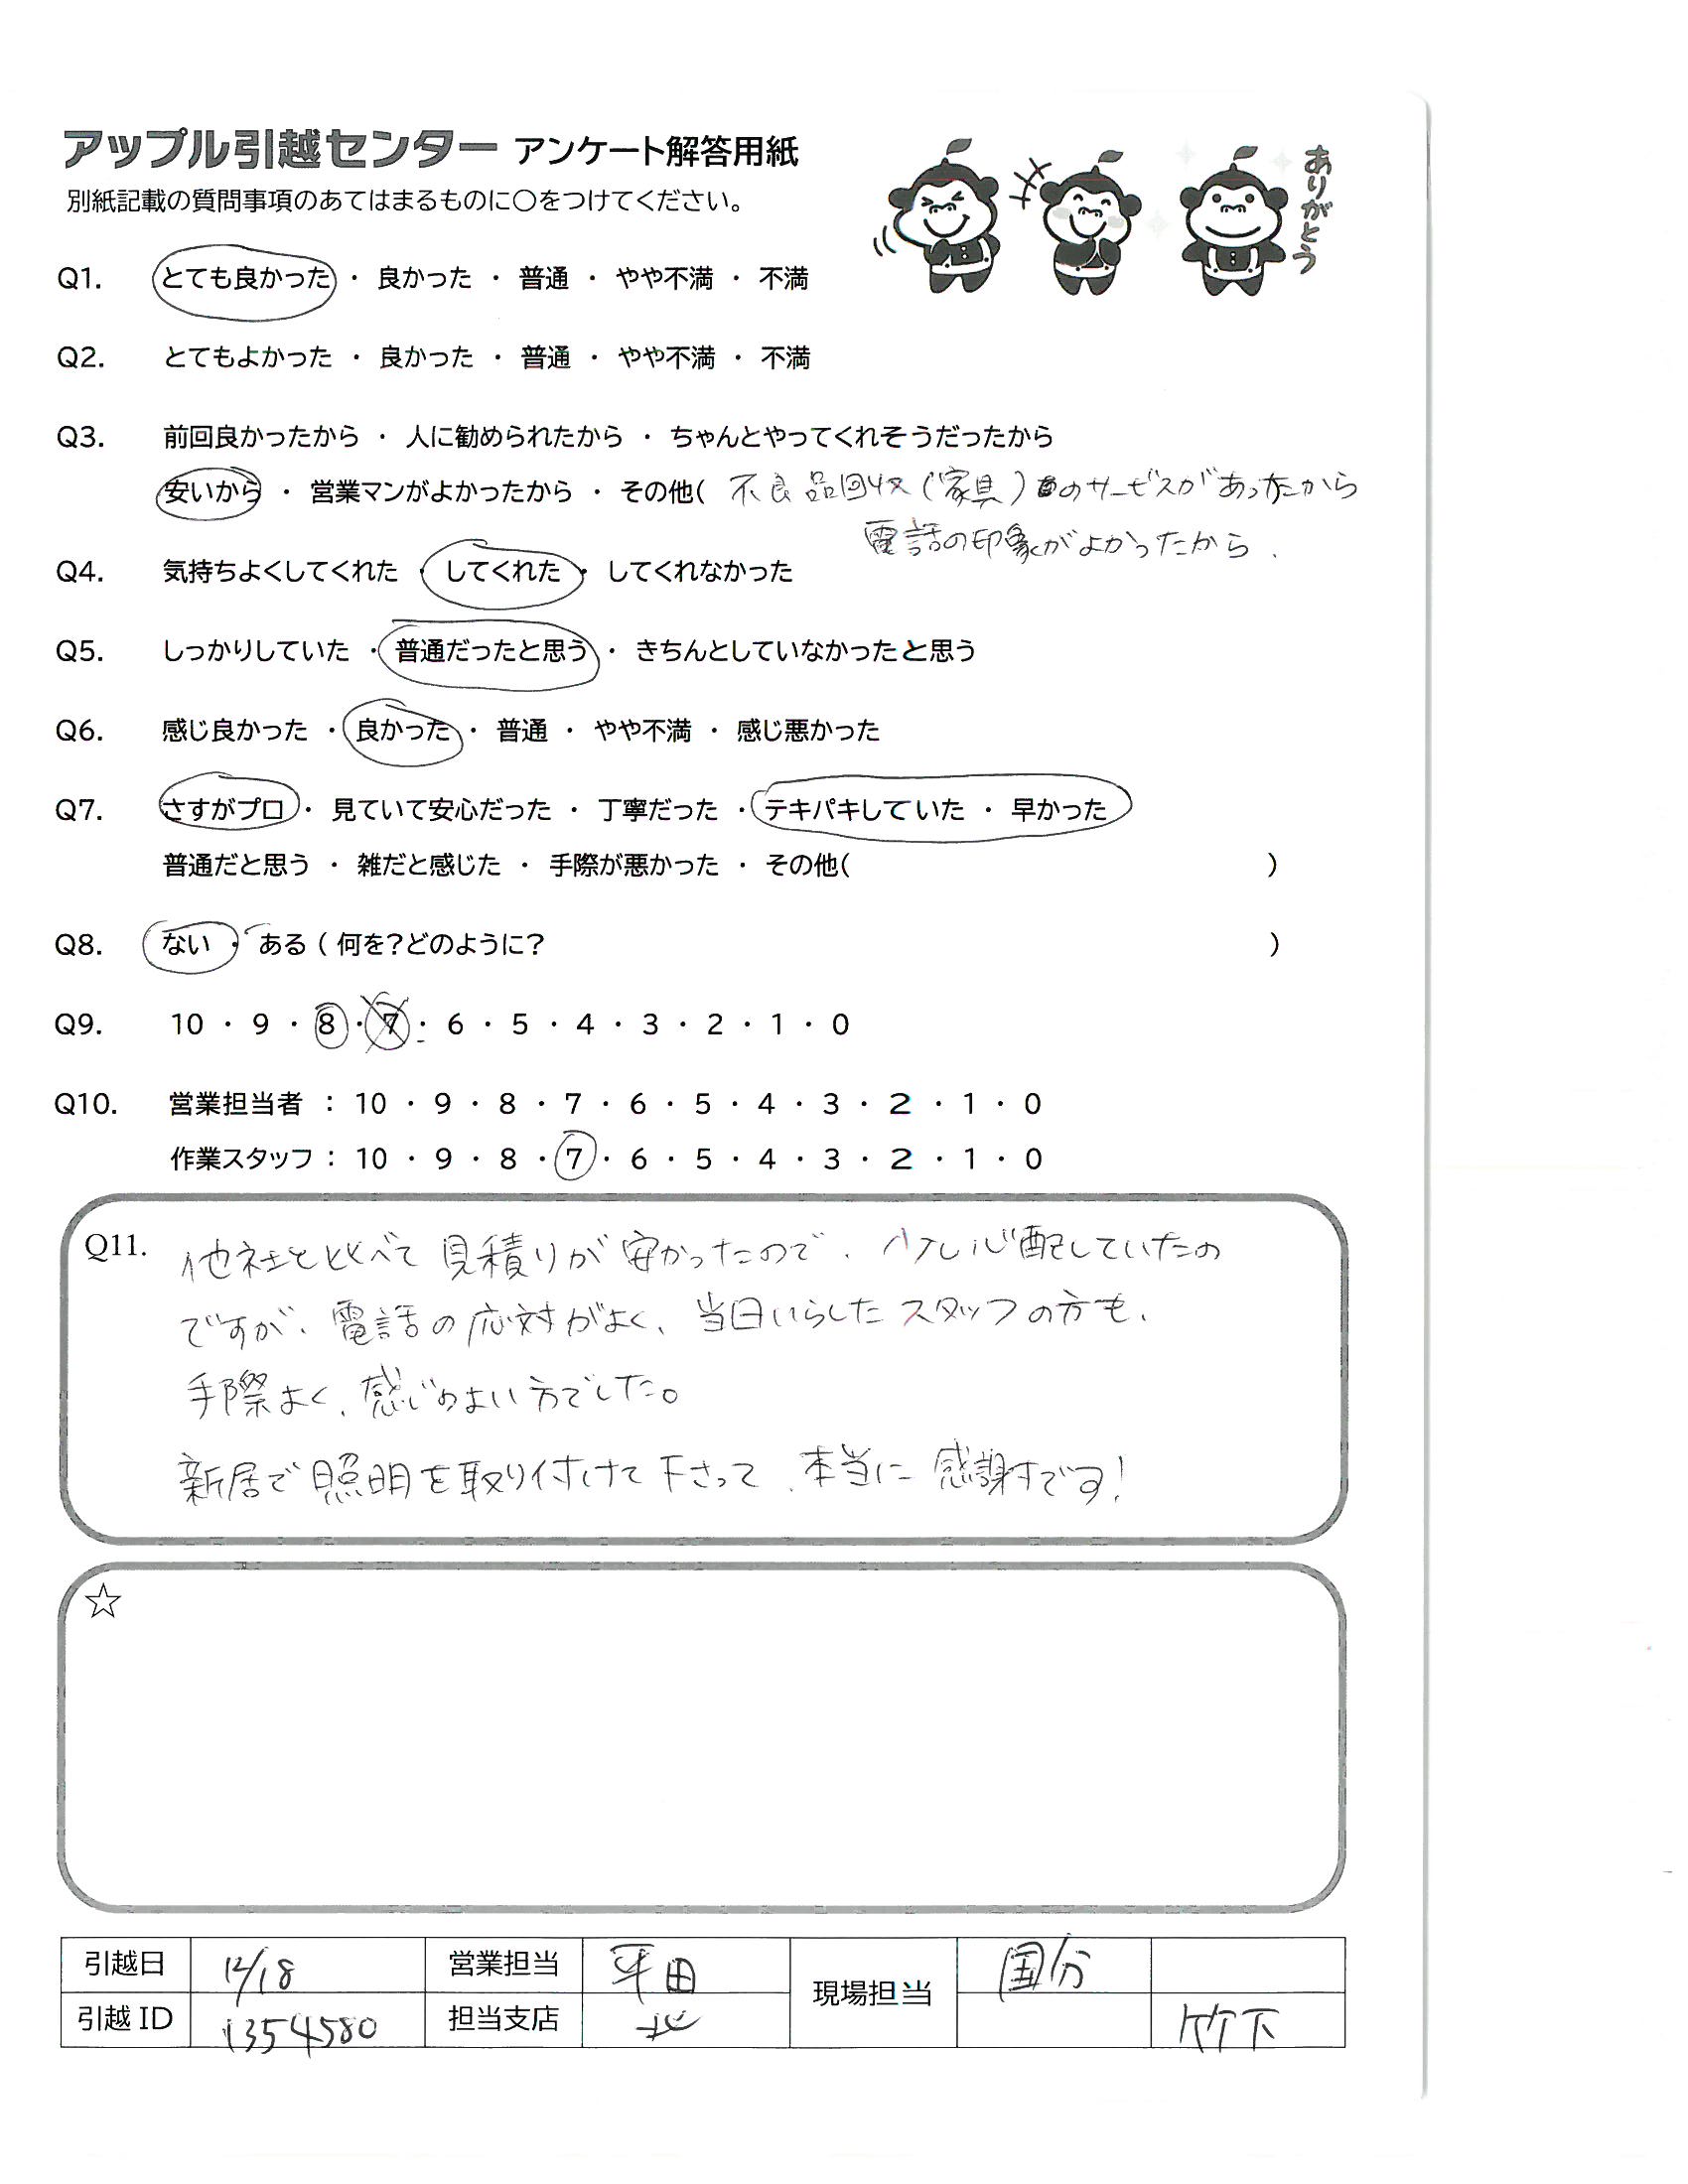 アップル引越センター アンケート解答用紙
ありがとう
別紙記載の質問事項のあてはまるものに○をつけてください。
Q1. とても良かった ・ 良かった ・ 普通 ・ やや不満 ・ 不満
Q2. とてもよかった ・ 良かった ・ 普通 ・ やや不満 ・ 不満
Q3. 前回良かったから ・ 人に勧められたから ・ ちゃんとやってくれそうだったから
安いから ・ 営業マンがよかったから ・ その他( 不良品回収(家具)のサービスがあったから
電話の印象がよかったから.
Q4. 気持ちよくしてくれた ・ してくれた ・ してくれなかった
Q5. しっかりしていた ・ 普通だったと思う ・ きちんとしていなかったと思う
Q6. 感じ良かった ・ 良かった ・ 普通 ・ やや不満 ・ 感じ悪かった
Q7. さすがプロ ・ 見ていて安心だった ・ 丁寧だった ・ テキパキしていた ・ 早かった
普通だと思う ・ 雑だと感じた ・ 手際が悪かった ・ その他( )
Q8. ない ・ ある ( 何を?どのように? )
Q9. 10 ・ 9 ・ 8 ・ 7 ・ 6 ・ 5 ・ 4 ・ 3 ・ 2 ・ 1 ・ 0
Q10. 営業担当者 : 10 ・ 9 ・ 8 ・ 7 ・ 6 ・ 5 ・ 4 ・ 3 ・ 2 ・ 1 ・ 0
作業スタッフ : 10 ・ 9 ・ 8 ・ 7 ・ 6 ・ 5 ・ 4 ・ 3 ・ 2 ・ 1 ・ 0
Q11. 他社と比べて見積りが安かったので、少し心配していたの
ですが、電話の応対がよく、当日いらしたスタッフの方も、
手際よく、感じのよい方でした。
新居で照明を取り付けて下さって、本当に感謝です!
☆
引越日 12/18 営業担当 平田 現場担当 国分
引越ID 1354580 担当支店 北 竹下